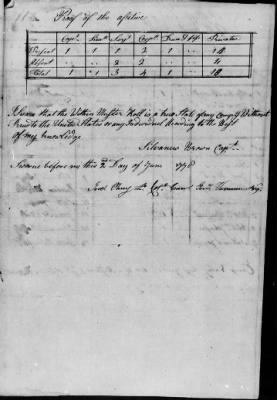 Proof of the afsetive
Capt. Lieut. Serjt. Corpl. Drum & fif. Privates
Present 1 1 1 2 1 .. 14
Absent .. .. 2 2 .. .. 4
Total 1 1 3 4 1 .. 18
I Swear that the Within Muster Roll is a true State of my Company Without
Fraud to the United States or any Individual According to the Best
of my knowledge
Silvanus Brown Capt.
Sworn before me this 2d Day of June 1778